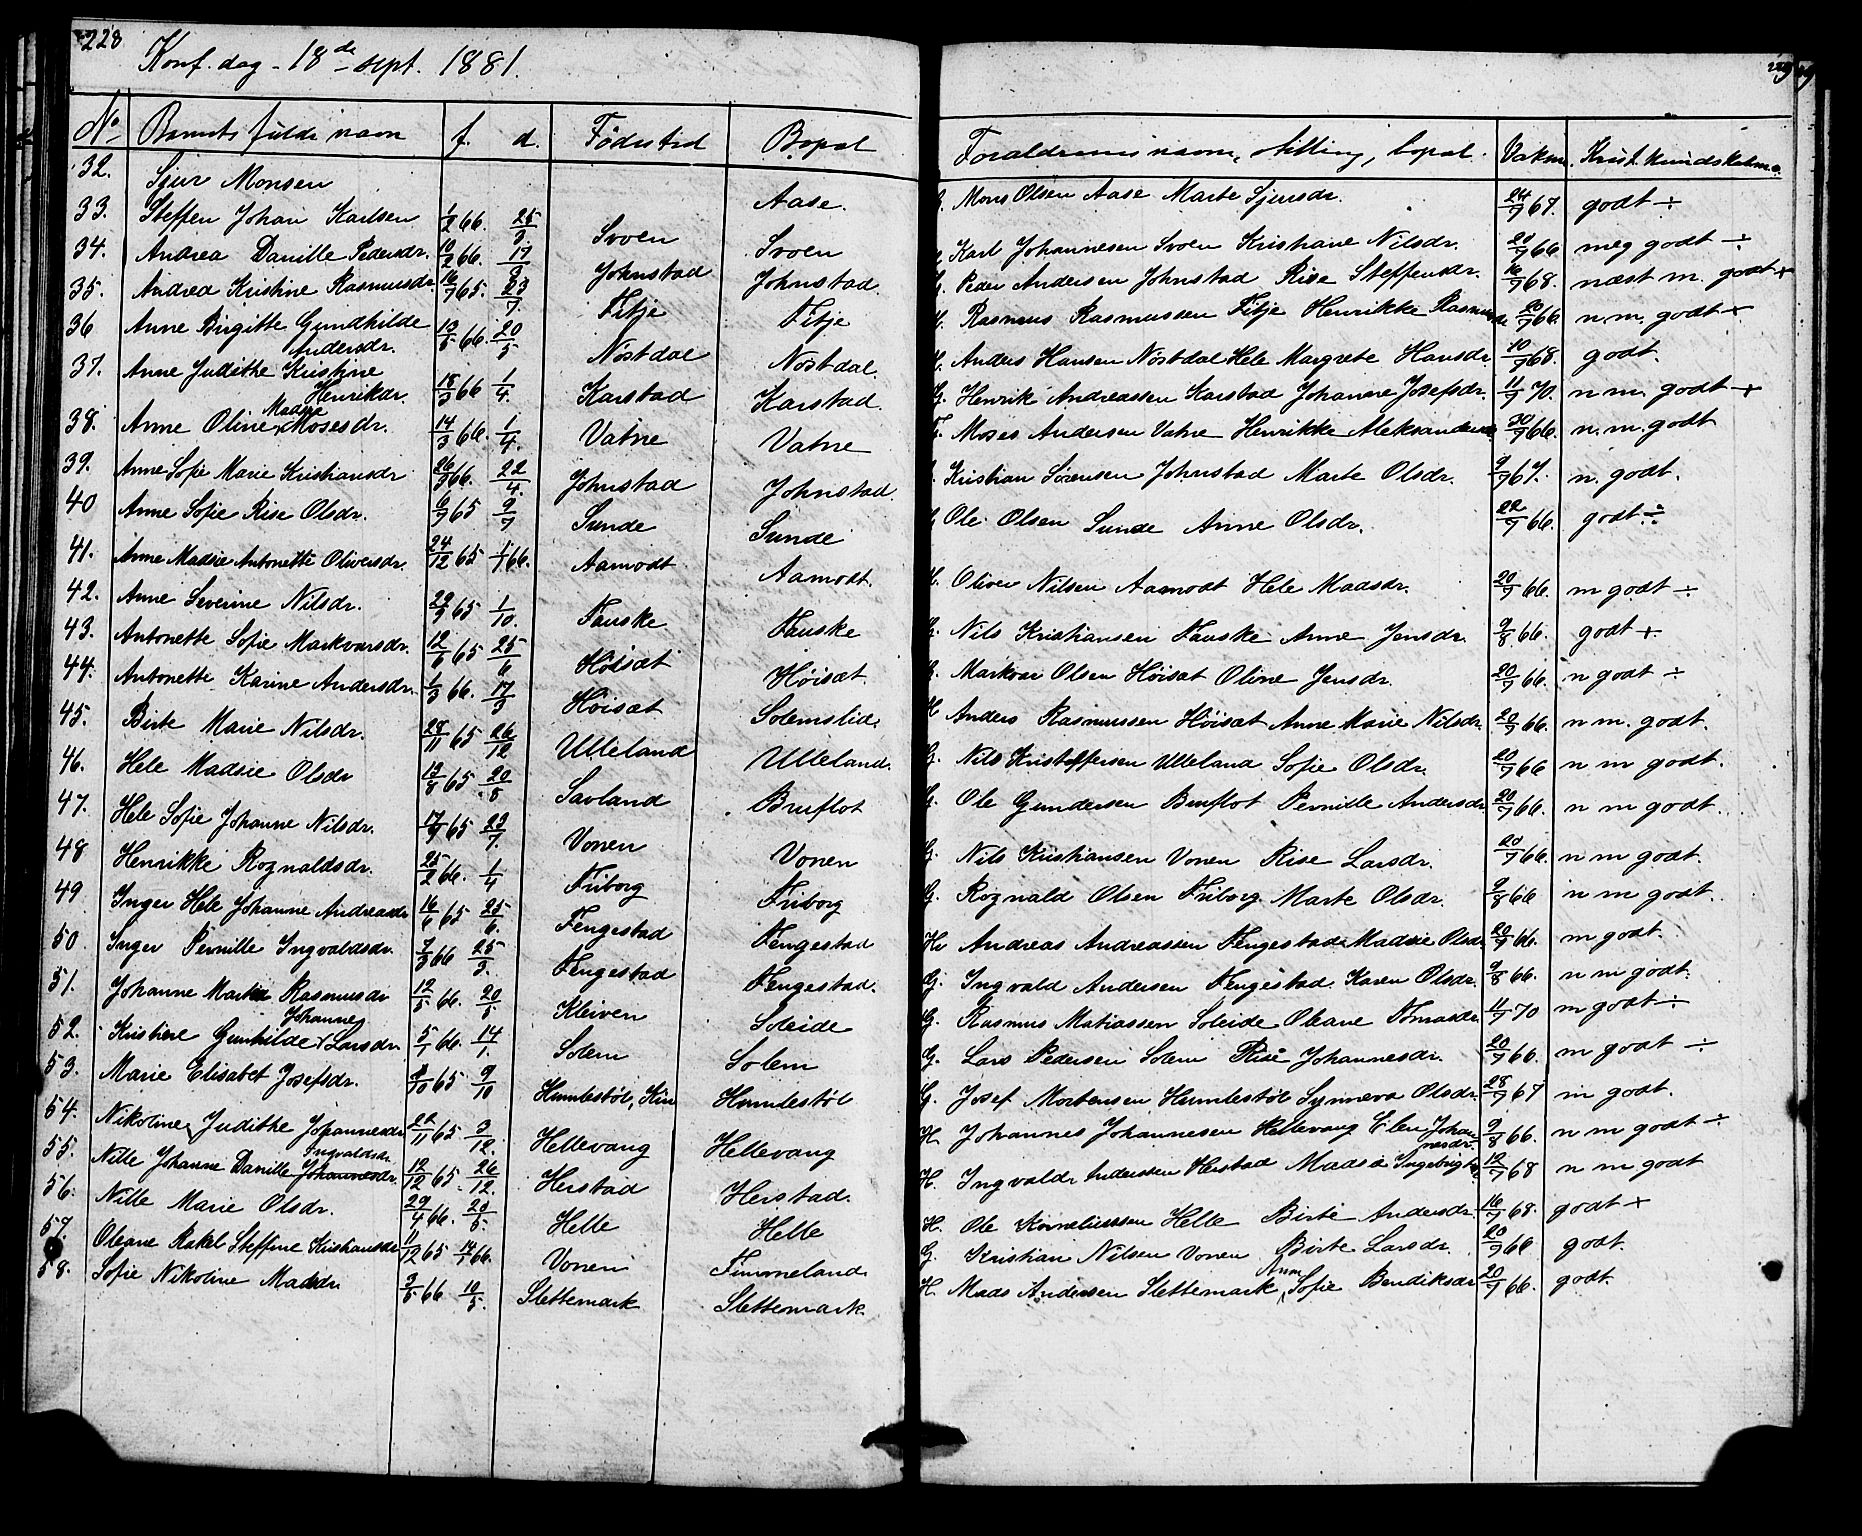 228
Konf. dag - 18de sept. 1881.
No. Barnets fulde navn f. d. Fødested Bopæl Forældrenes navn, stilling, bopæl. Vaksin. Krist. kundskabm.
32. Sjur Monsen Aase. G. Mons Olsen Aase Marte Sjursdr. 24/9 67. godt ÷
33. Steffen Johan Karlsen 1/2 66. 25/3 Svoen Svoen Karl Johannesen Svoen Kristiane Nilsdr. 20/9 66 meg godt ÷
34. Andrea Danille Pedersdr. 10/2 66. 17/3 Johnstad Johnstad. G. Peder Andersen Johnstad Rise Steffensdr. 16/7 68. næst m. godt +
35. Andrea Kristine Rasmusdr. 16/7 65. 23/7. Fitje Fitje H. Rasmus Rasmussen Fitje Henrikke Rasmusdr 20/7 66. n m. godt +
36 Anne Birgitte Gundhilde Andersdr. 13/5 66. 20/5 Nøstdal Nøstdal. H. Anders Hansen Nøstdal Hele Margrete Hansdr. 10/9 68. godt.
37. Anne Judithe Kristine Henrikdr. 18/3 66 1/4. Karstad Karstad. G. Henrik Andreassen Karstad Johanne Josefsdr. 11/9 70. n m. godt +
38. Anne Oline Madsie Mosesdr. 14/3 66. 1/4. Vatne Vatne G. Moses Andersen Vatne Henrikke Aleksandersdr 20/9 66. n. m. godt
39. Anne Sofie Marie Kristiansdr 26/3 66. 22/4. Johnstad Johnstad. Kristian Sørensen Johnstad Marte Olsdr. 9/9 67. n. godt.
40 Anne Sofie Rise Olsdr. 6/7 65 9/7 Sunde Sunde G Ole Olsen Sunde Anne Olsdr. 22/7 66. godt ÷
41. Anne Madsie Antonette Oliversdr. 24/12 65 1/1 66. Aamodt Aamodt. H. Oliver Nilsen Aamodt Hele Madsdr. 20/9 66. m godt ÷
42. Anne Severine Nilsdr. 29/9 65 1/10. Fauske Fauske G. Nils Kristiansen Fauske Anne Jensdr. 9/8 66. godt +
43. Antonette Sofie Markvarsdr. 12/6 65 25/6 Høisæt Høisæt. G. Markvar Olsen Høisæt Oline Jensdr. 20/9 66. n godt ÷
44. Antonette Karine Andersdr. 1/3 66. 17/3 Høisæt Solemslid. H Anders Rasmussen Høisæt Anne Marie Nilsdr. 20/9 66. n m. godt.
45. Birte Marie Nilsdr. 28/11 65 26/12 Ulleland Ulleland. G. Nils Kristoffersen Ulleland Sofie Olsdr. 20/9 66 n m godt.
46. Hele Madsie Olsdr 13/8 65. 20/8 Savland Bruflot G. Ole Gundersen Bruflot Pernille Andersdr 20/9 66. n m godt.
47. Hele Sofie Johanne Nilsdr. 17/7 65 23/7. Vonen Vonen G. Nils Kristiansen Vonen Rise Larsdr. 20/7 66. n m godt.
48 Henrikke Rognaldsdr. 25/2 66. 1/4 Friborg Friborg G. Rognald Olsen Friborg Marte Olsdr. 9/8 66 n m godt.
49 Inger Hele Johanne Andreasdr 16/6 65 25/6. Fengestad Fengestad H. Andreas Andreassen Fengestad Madsie Olsdr. 20/9 66. m godt.
50. Inger Pernille Ingvaldsdr. 7/3 66 25/3. Fengestad Fengestad. G. Ingvald Andersen Fengestad Karen Olsdr. 9/8 66. n m godt.
51. Johanne Marta Rasmusdr 12/5 66. 20/5. Kleiven Soleide G. Rasmus Matiassen Soleide Oleane Tomasdr. 4/7 70 m godt ÷
52. Kristine Gunhilde Johanne Larsdr. 5/1 66. 14/1. Solem Solem G. Lars Pedersen Solem Rise Johannesdr. 20/9 66. m godt ÷
53. Marie Elisabet Josefsdr. 2/10 65 9/10 Humlestøl, Kin Humlestøl G. Josef Mortensen Humlestøl Synneva Olsdr. 28/9 67 m godt.
54. Nikoline Judithe Johannesdr 22/11 65 3/12. Hellevang Hellevang H. Johannes Johannesen Hellevang Elen Johannesdr. 9/8 66. n m godt ÷
55. Nille Johanne Danille Johannesdr. Ingvaldsdr. 12/12 65. 26/12. Herstad Herstad. H. Ingvald Anderssen Herstad Madsie Ingebrigtsdr. 12/7 68 n m godt
56. Nille Marie Olsdr. 29/4 66. 20/5. Helle Helle H. Ole Korneliussen Helle Birte Andersdr. 16/7 68. godt +
57. Oleane Rakel Steffine Kristiansdr 11/12 65 14/1 66. Vonen Timmeland. G. Kristian Nilsen Vonen Birte Larsdr. 20/9 66 godt.
58. Sofie Nikoline Madsdr 3/5 66 10/5. Slettemark Slettemark. H. Mads Andersen Slettemark Anne Sofie Bendiksdr 20/9 66. godt.